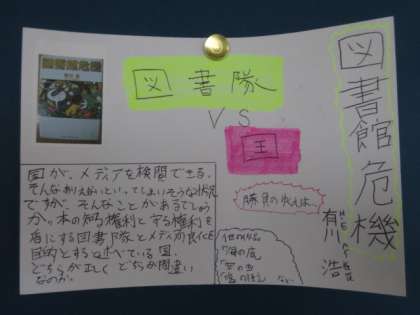 図書館危機
有川 浩
図書隊
VS
国
勝負のゆくえは…
国が、メディアを検閲できる。
そんなありえないといってしまいそうな状況
ですが、そんなことがあるでしょう
か。本の知る権利と守る権利も
盾にする図書隊とメディア良化を
目的とすると述べている国。
どちらが正しく どちらが間違い
なのか。
他の作品
「海の底」
「空の中」
など